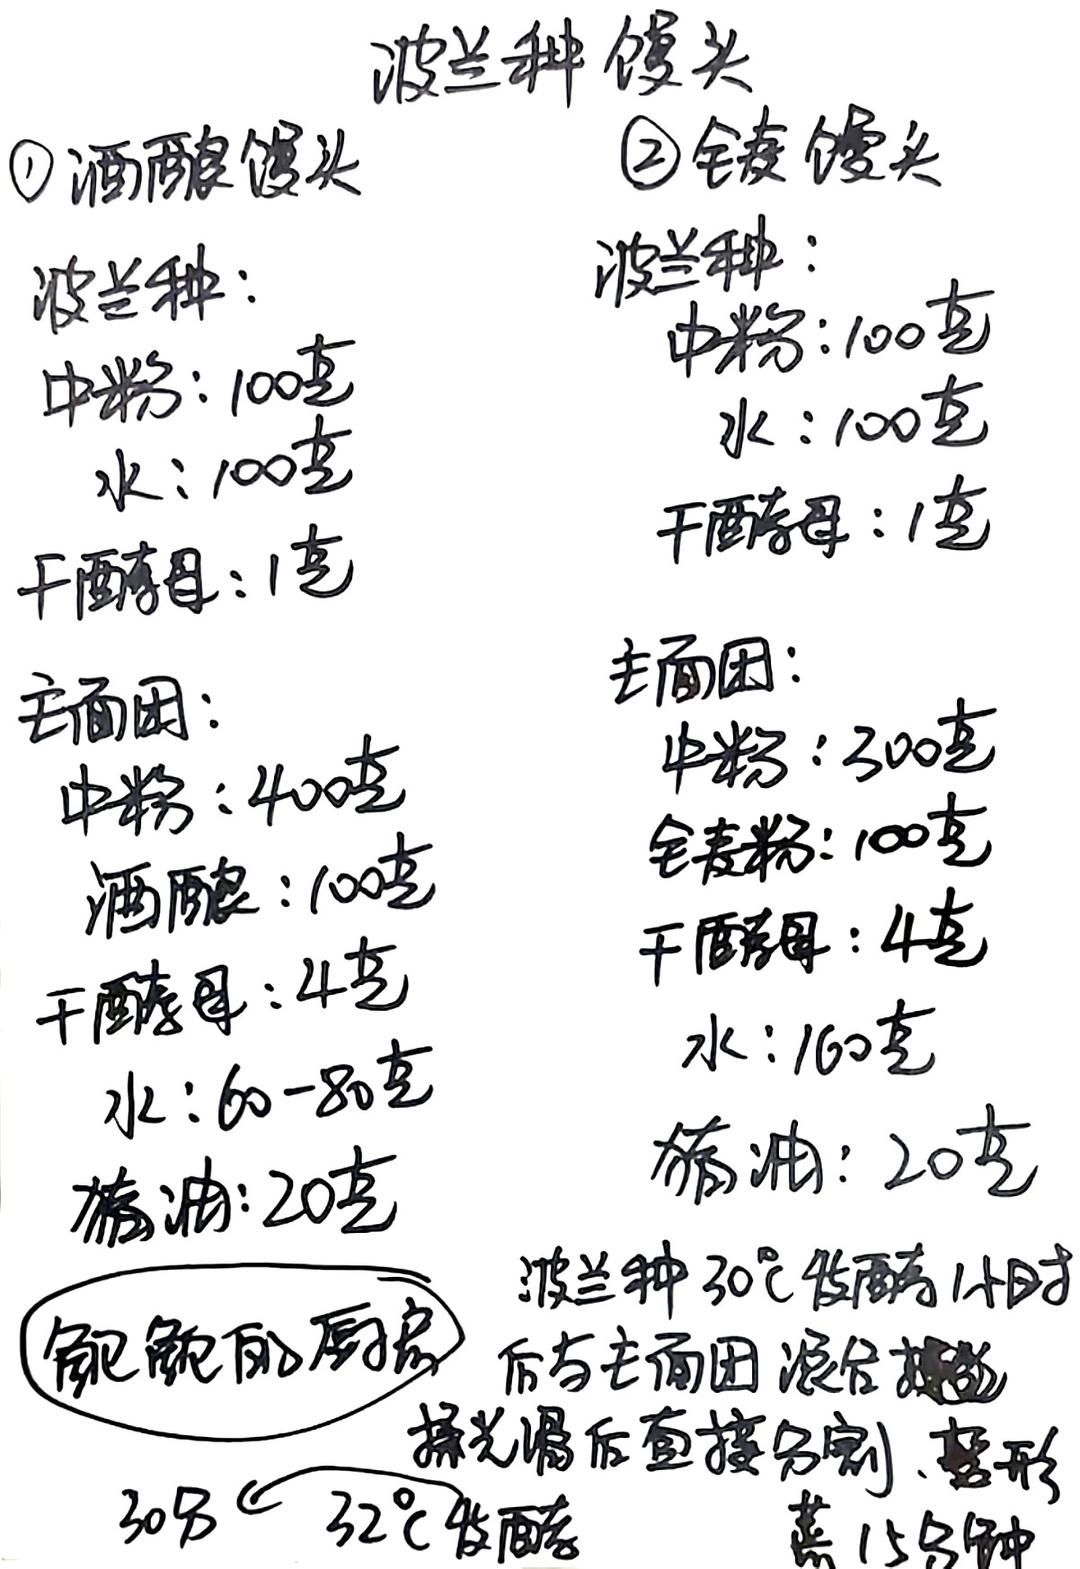 波兰种馒头
①酒酿馒头
波兰种:
中粉:100克
水:100克
干酵母:1克
主面团:
中粉:400克
酒酿:100克
干酵母:4克
水:60-80克
猪油:20克
②全麦馒头
波兰种:
中粉:100克
水:100克
干酵母:1克
主面团:
中粉:300克
全麦粉:100克
干酵母:4克
水:160克
猪油:20克
鲍鲍的厨房
波兰种30℃发酵1小时
后与主面团混合
揉光滑后直接分割、整形
32℃发酵
30分
蒸15分钟